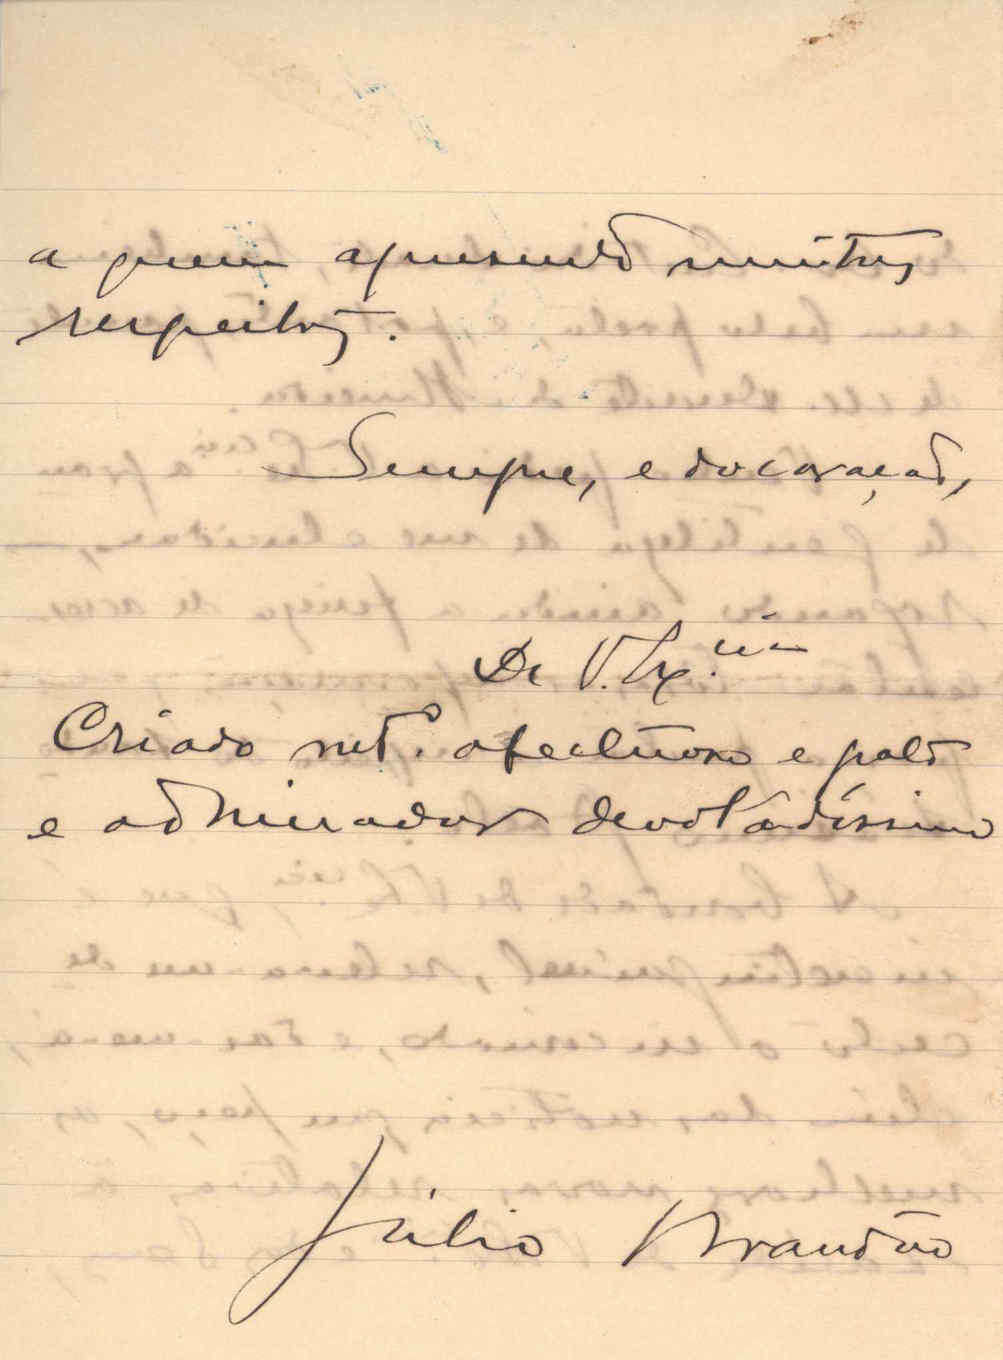 a quem apresento muitos
respeitos.
Sempre, e do coração,
De V. Ex.cia
Criado mt.º afectuoso e grato
e admirador devotadíssimo
Júlio Brandão